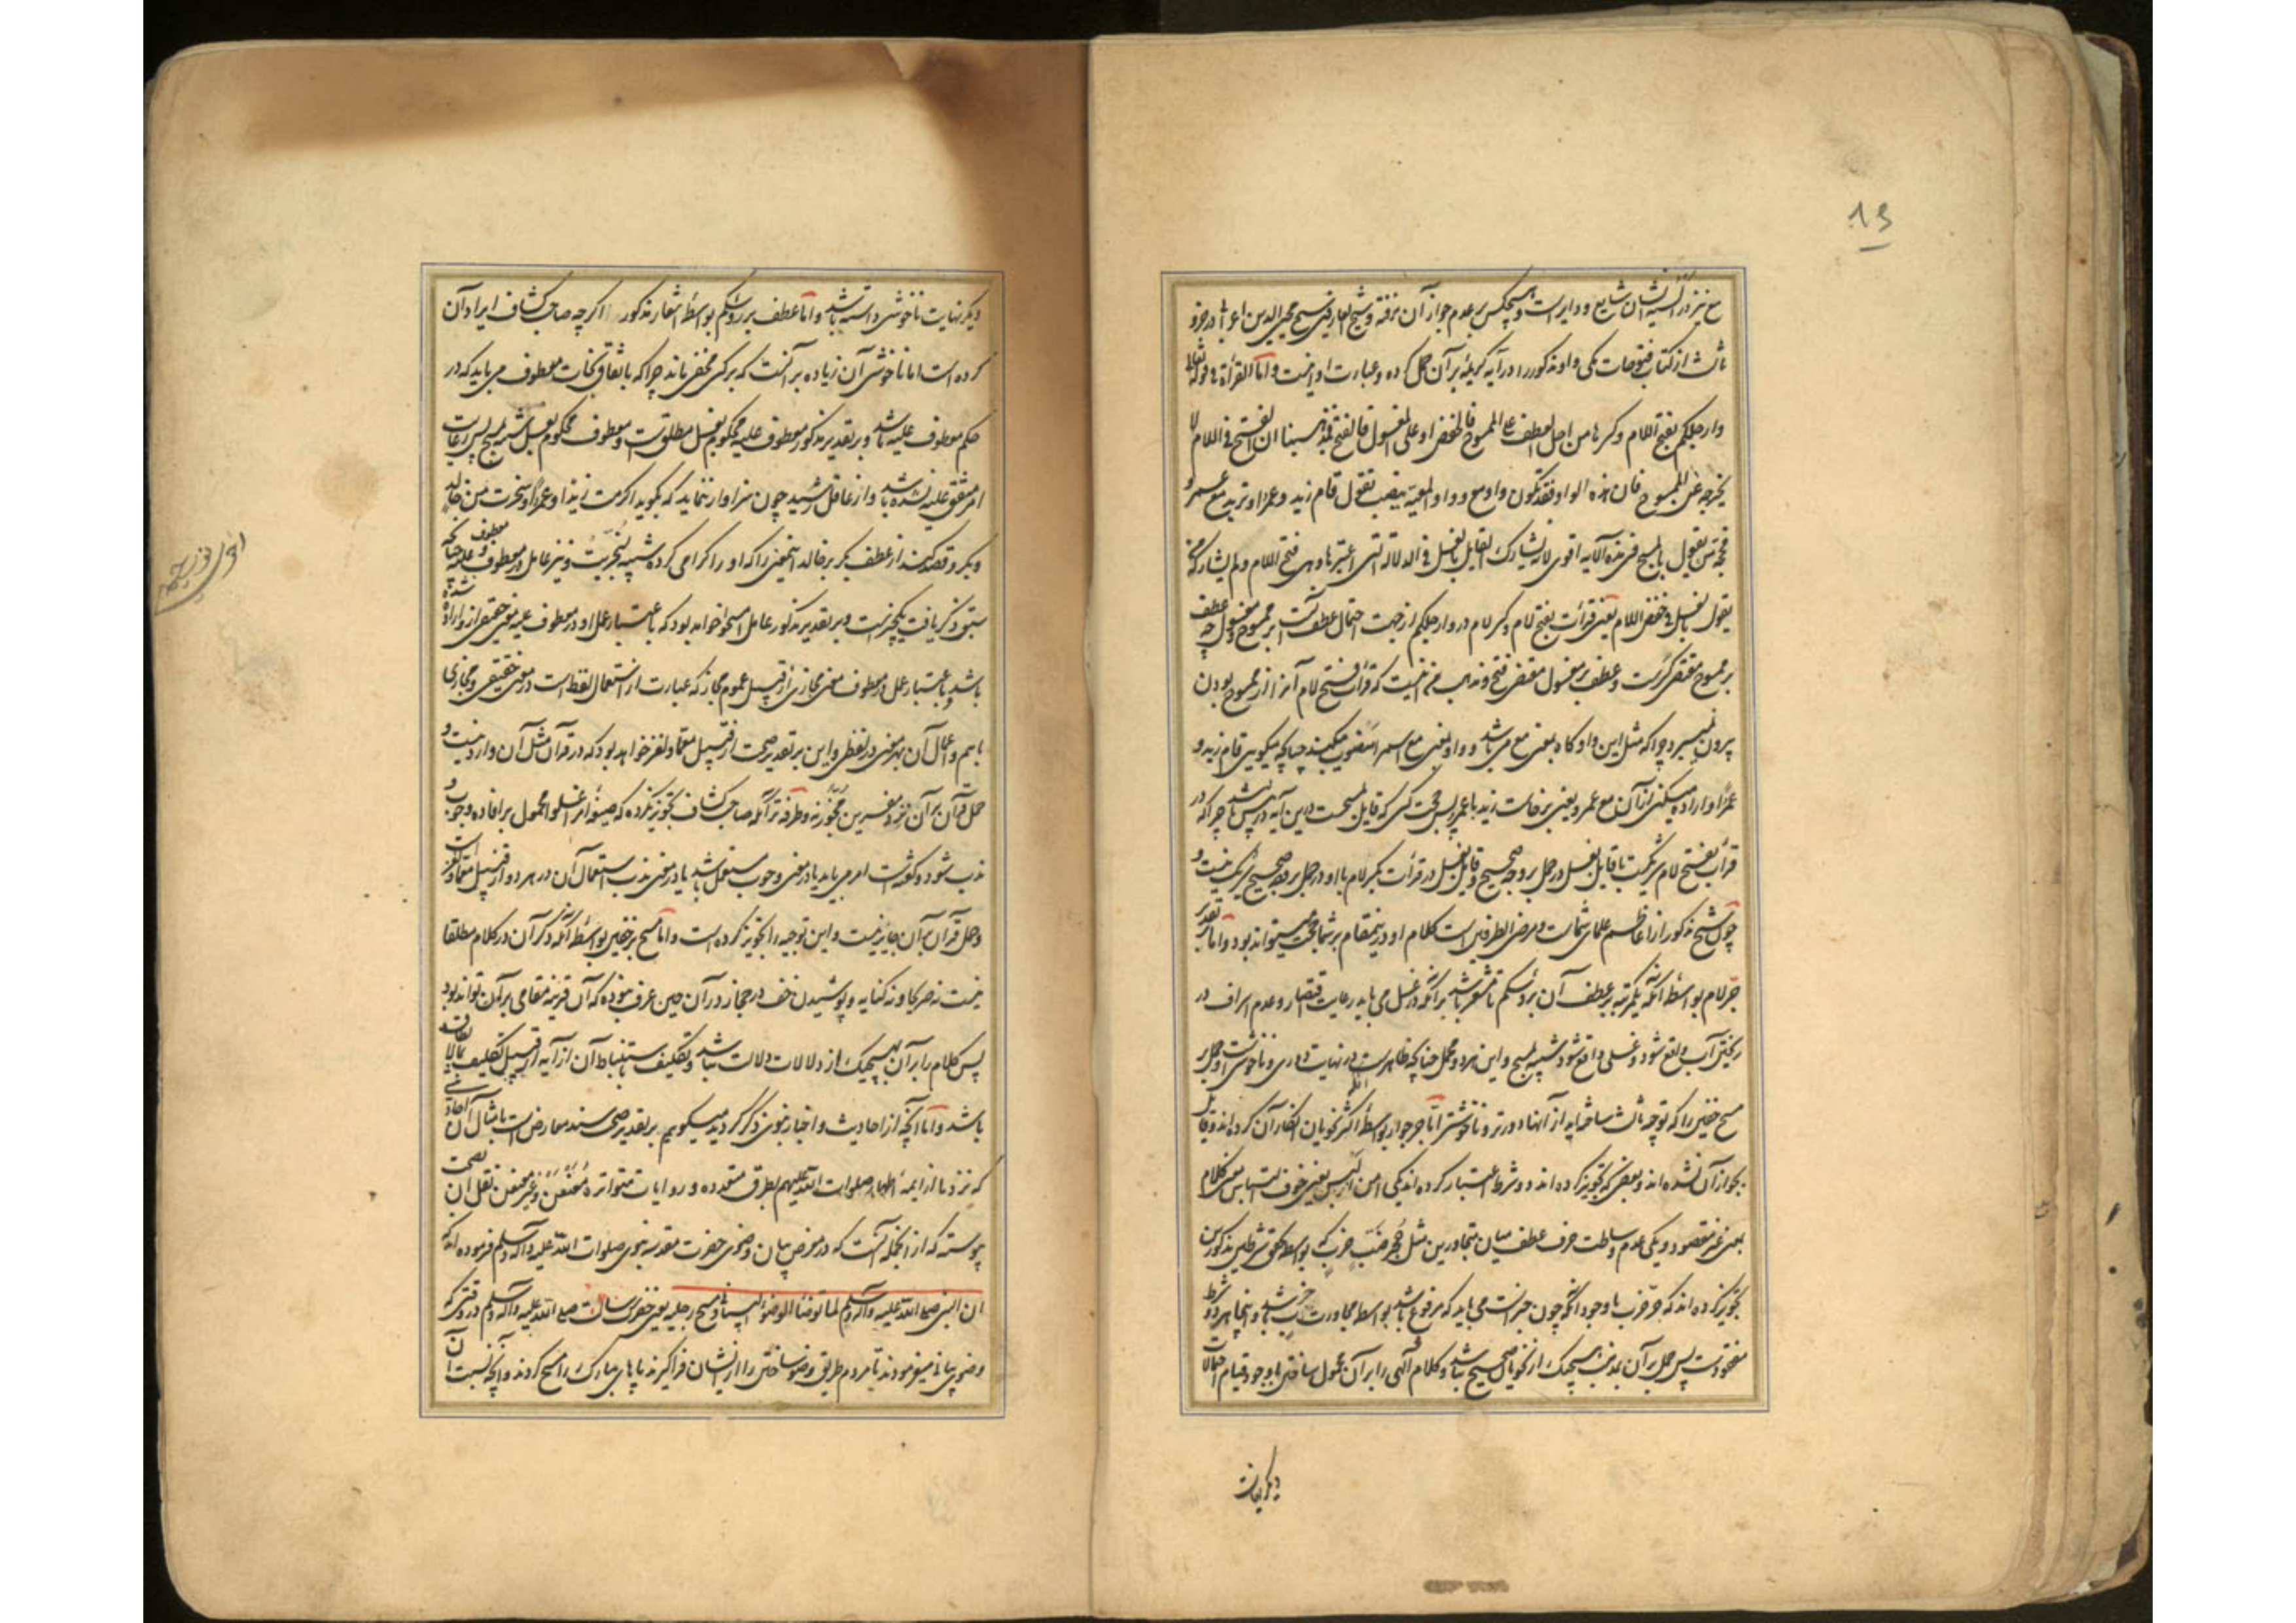 13
مع نیز در السنه ایشان شایع و دایر است و هیچکس بر عدم جواز آن نرفته و شیخ العارفین شیخ محیی الدین اعرابی در جزو
ثالث از کتاب فتوحات مکی واو مذکور را در آیه کریمه بر آن حمل کرده و عبارت او اینست و اما القرأة فی قوله تعالی
وارجلکم بفتح اللام وکسرها من اجل العطف علی الممسوح فالخفض او علی المغسول فالفتح فمذهبنا ان الفتح فی اللام لا
یخرجه عن الممسوح فان هذه الواو قد تکون واو مع وواو المعیة ینصب تقول قام زید وعمرا وترید مع عمرو
فحجة من یقول بالمسح فی هذه الآیه اقوی لانه یشارک القایل بالغسل فی الدلالة التی اعتبرها وهی فتح اللام ولم یشارکه من
یقول بالغسل فی خفض اللام یعنی قرائت بفتح لام و کسر لام در وارجلکم از جهت احتمال عطف است بر ممسوح و مغسول چه عطف
بر ممسوح مقتضی کسرست و عطف بر مغسول مقتضی فتح و مذهب من اینست که قرائت فتح لام آنرا از ممسوح بودن
بیرون نمیبرد چراکه مثل این واو گاه بمعنی مع می باشد و واو بمعنی مع اسم را منصوب میکند چنانکه میگویی قام زید و
عمرا و اراده میکنی از آن مع عمرو یعنی برخاست زید با عمرو پس حجت کسی که قایل بمسح است درین آیه چراکه در
قرائت بفتح لام شریکست با قایل بغسل در حمل بر وجه صحیح و قایل بغسل در قرائت بکسر لام با او در حمل بر وجه صحیح شریک نیست و
چون شیخ مذکور از اعاظم علمای شماست و مرضی الطرفین است کلام او درینمقام بر شما حجت میتواند بود و اما تقدیر
جر لام بواسطه آنکه یکمرتبه بر عطف آن برؤسکم تا مشعر باشد برآنکه در غسل می باید رعایت اقتصار و عدم اسراف در
ریختن آب واقع شود و غسلی واقع شود شبیه بمسح و این هر دو محمل چنانچه ظاهرست در نهایت دوری و ناخوشی است و حمل بر
مسح خفین را که توجیه ثالث ساخته‌اید از آنها دورتر و ناخوشتر اما جر جوار بواسطه آنکه اکثر نحویان انکار آن کرده‌اند و قایل
بجواز آن نشده‌اند و بعضی که تجویز کرده‌اند دو شرط اعتبار کرده‌اند یکی امن از لبس یعنی خوف التباس معنی کلام
بمعنی غیر مقصود و یکی عدم وساطت حرف عطف میان متجاورین مثل جحر ضب خرب که بواسطه تحقق شرطین مذکورین
تجویز کرده‌اند که جر خرب با وجود آنکه چون خبر است می باید که مرفوع باشد بواسطه مجاورت ضب باشد و اینجا هر دو شرط
مفقودست پس حمل بر آن بمذهب هیچیک از نحویان صحیح نباشد و کلام الهی را بر آن محمول ساختن با وجود قیام احتمالات
دیگر نهایت
دیگر نهایت ناخوشی داشته باشد و اما عطف برؤسکم بواسطه اشعار مذکور اگرچه صاحب کشاف ایراد آن
کرده است اما ناخوشی آن زیاده بر آنست که بر کسی مخفی ماند چراکه باتفاق نحات معطوف می باید که در
حکم معطوف علیه باشد و بر تقدیر مذکور معطوف علیه محکوم بغسل مطلق است و معطوف محکوم بغسل شبیه بمسح پس رعایت
امر متفق علیه نشده باشد و از عاقل رشید چون سزاوار نماید که بگوید اکرمت زیدا وعمرا وسخرت من خالد
وبکر و قصد کند از عطف بکر بر خالد اینمعنی را که او را اکرامی کرده شبیه بسخریت و نیز عامل در معطوف و معطوف علیه چنانچه
سبق ذکر یافت یکچیز است و بر تقدیر مذکور عامل امسحوا خواهد بود که باعتبار عمل او در معطوف علیه معنی حقیقی از او اراده شده
باشد و باعتبار عمل در معطوف معنی مجازی از قبیل عموم مجاز که عبارت از استعمال لفظ است در معنی حقیقی و مجازی
باهم و اعمال آن بهر معنی در لفظی و این بر تقدیر صحت از قبیل معما و لغز خواهد بود که در قرآن مثل آن وارد نیست و
حمل قرآن بر آن نزد مفسرین مجوز نه و طرفه تر آنکه صاحب کشاف تجویز نکرده که صیغه امر اغسلوا محمول بر افاده وجوب و
ندب شود و گفته است امر می باید یا در معنی وجوب مستعمل باشد یا در معنی ندب استعمال آن در هر دو از قبیل معما و لغز است
و حمل قرآن بر آن جایز نیست و این توجیه را تجویز کرده است و اما مسح بر خفین بواسطه آنکه ذکر آن در کلام مطلقا
نیست نه صریحا و نه کنایه و پوشیدن خف در حجاز در آن حین عرف نبوده که آن قرینه مقامی بر آن تواند بود
پس کلام را بر آن بهیچیک از دلالات دلالت نباشد و تکلیف باستنباط آن از آیه از قبیل تکلیف بمالایطاق
باشد و اما آنچه از احادیث و اخبار نبوی ذکر گردید میگویم بر تقدیر صحت سند معارض است بامثال آن احادیثی
که نزد ما از ایمه اطهار صلوات الله علیهم بطرق متعدده و روایات متواتره معنعن و غیر معنعن نقل آن بصحت
پیوسته که از آنجمله آنست که در معرض بیان وضوی حضرت مقدسه نبوی صلوات الله علیه و آله و سلم فرموده‌اند که
ان النبی صلی الله علیه وآله وسلم لما توضأ الوضوء البیانی مسح رجلیه یعنی حضرت رسالت صلی الله علیه وآله وسلم در وقتی که
وضوی بیانی میفرمودند تا مردم طریق وضو ساختن را از ایشان فراگیرند پاهای مبارک را مسح کردند و آنچه نسبت آن